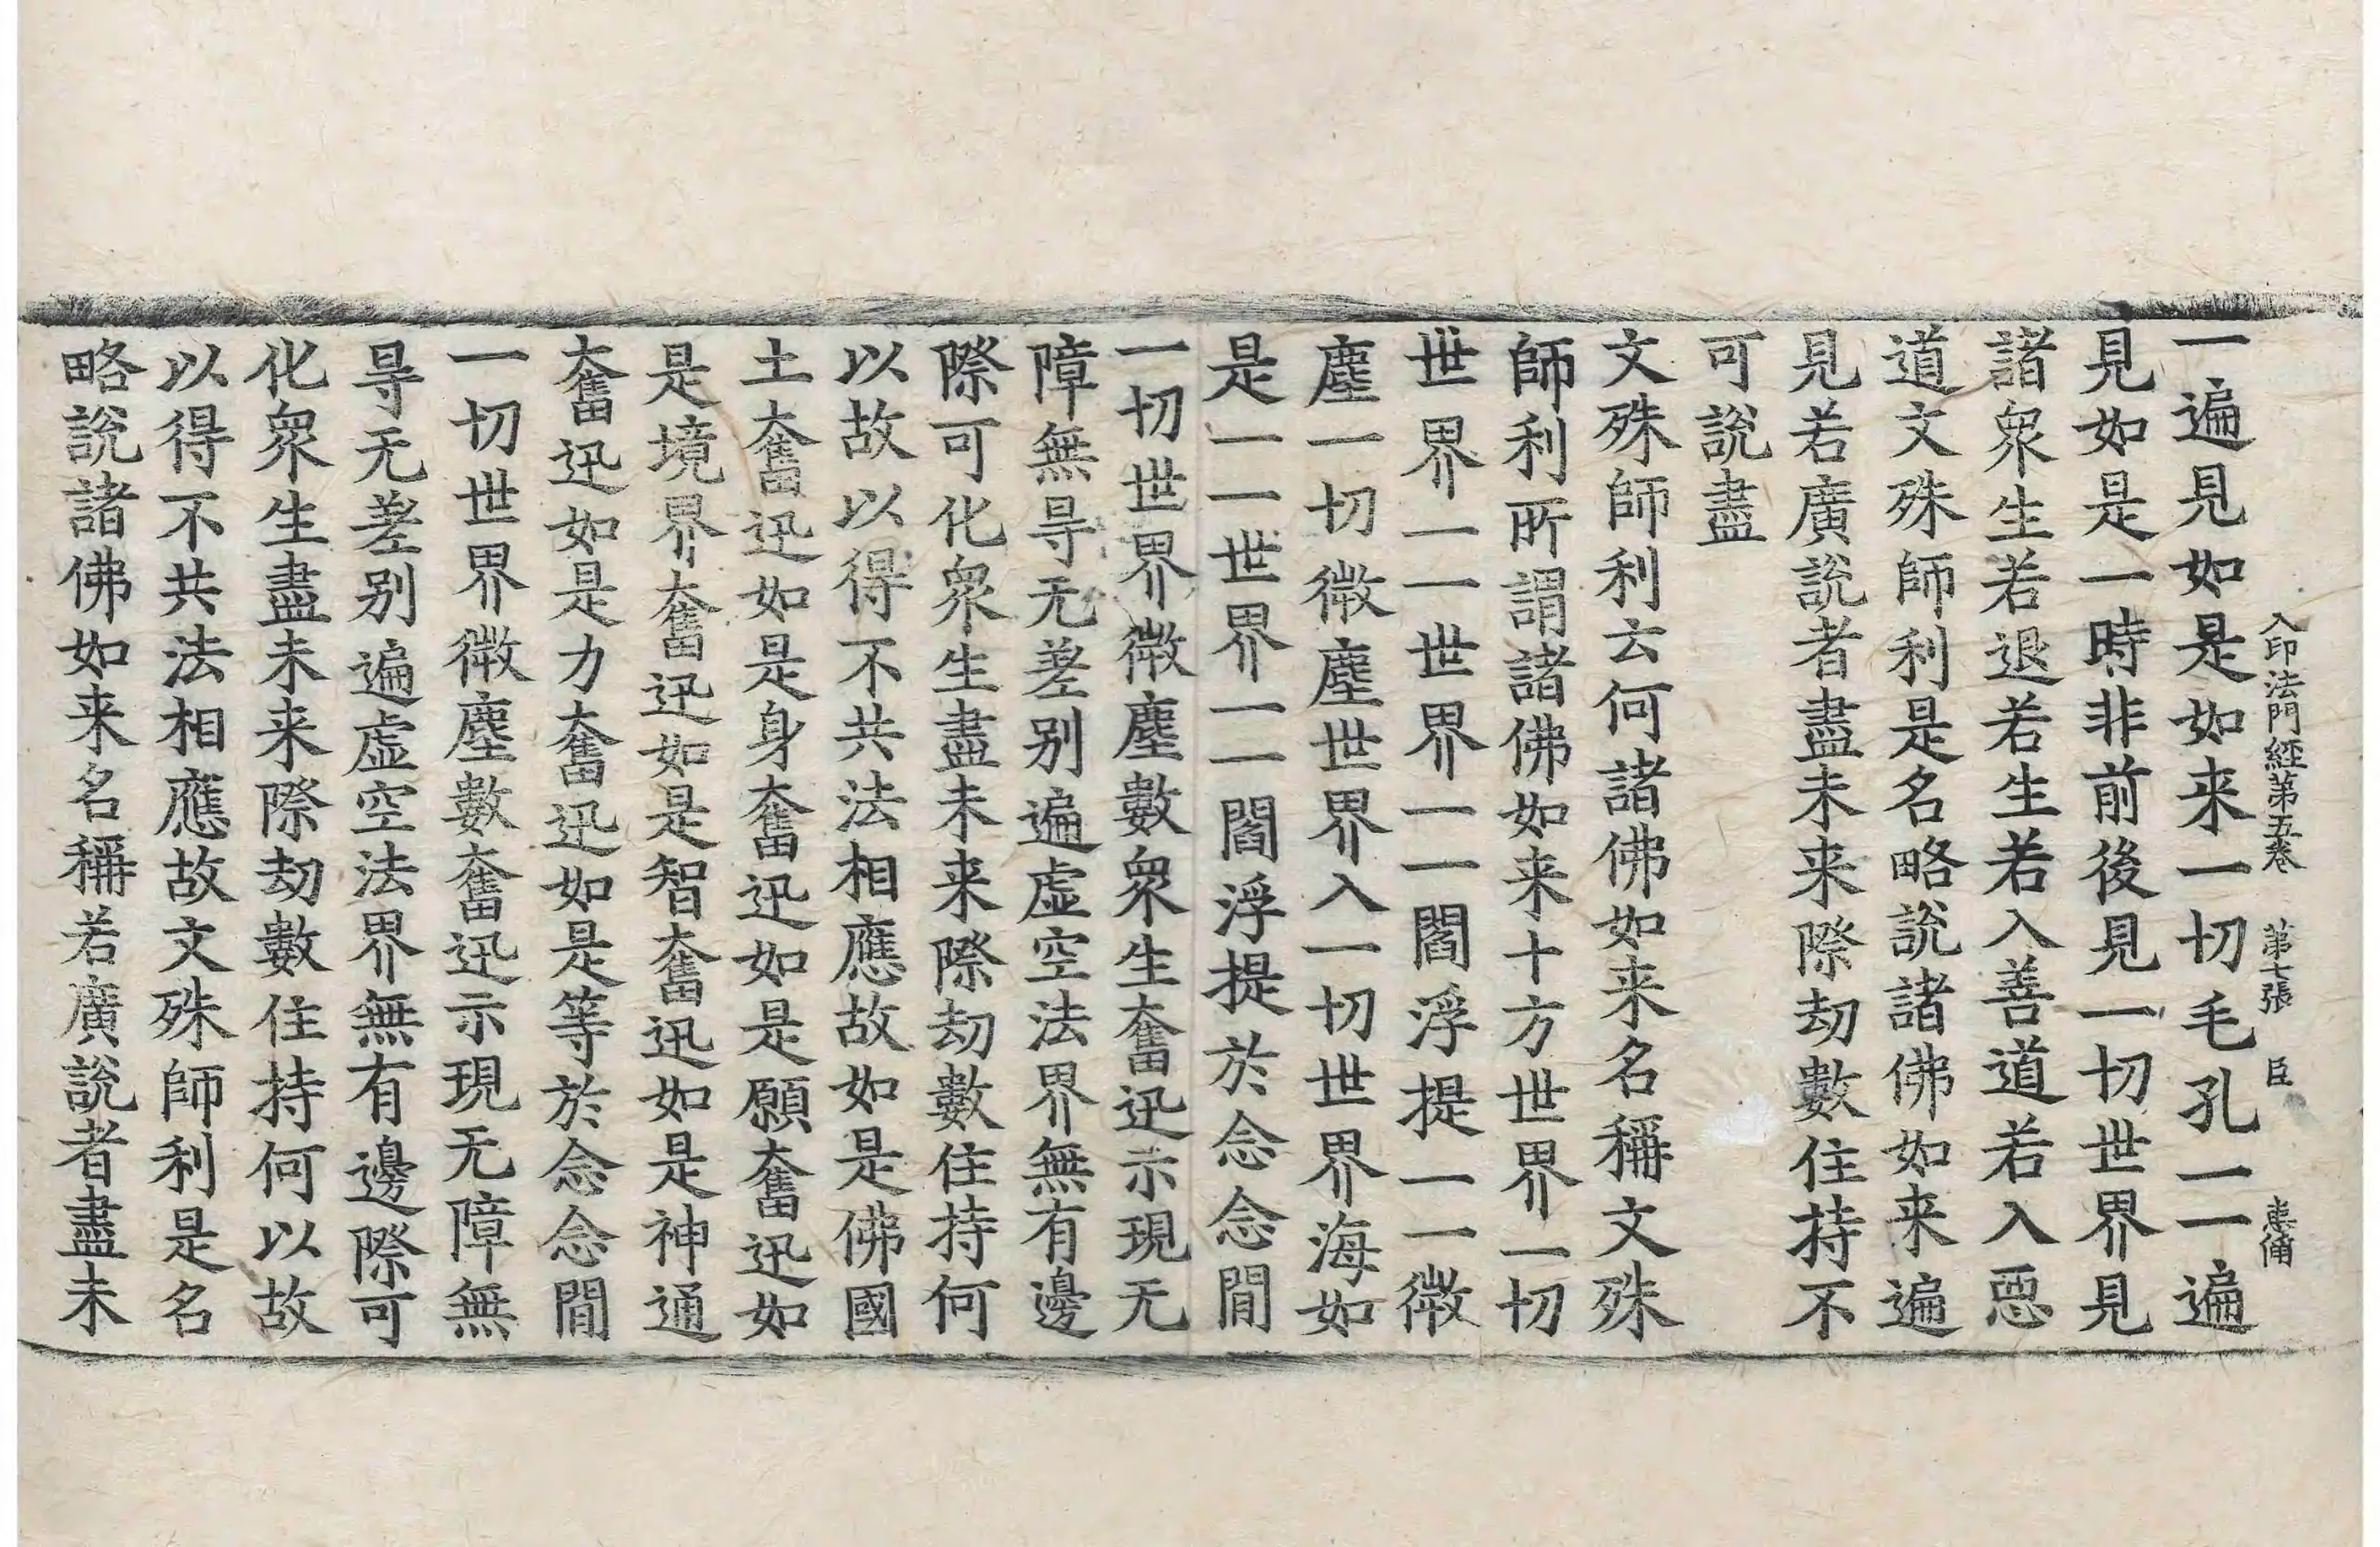 入印法門經第五卷 第七張 臣
一遍見如是如来一切毛孔一一遍
見如是一時非前後見一切世界見
諸衆生若退若生若入善道若入惡
道文殊師利是名略說諸佛如来遍
見若廣說者盡未来際劫數住持不
可說盡
文殊師利云何諸佛如来名稱文殊
師利所謂諸佛如来十方世界一切
世界一一世界一一閻浮提一一微
塵一切微塵世界入一切世界海如
是一一世界一一閻浮提於念念間
一切世界微塵數衆生奮迅示現无
障無㝵无差别遍虛空法界無有邊
際可化衆生盡未来際劫數住持何
以故以得不共法相應故如是佛國
土奮迅如是身奮迅如是願奮迅如
是境界奮迅如是智奮迅如是神通
奮迅如是力奮迅如是等於念念間
一切世界微塵數奮迅示現无障無
㝵无差别遍虛空法界無有邊際可
化衆生盡未来際劫數住持何以故
以得不共法相應故文殊師利是名
略說諸佛如来名稱若廣說者盡未